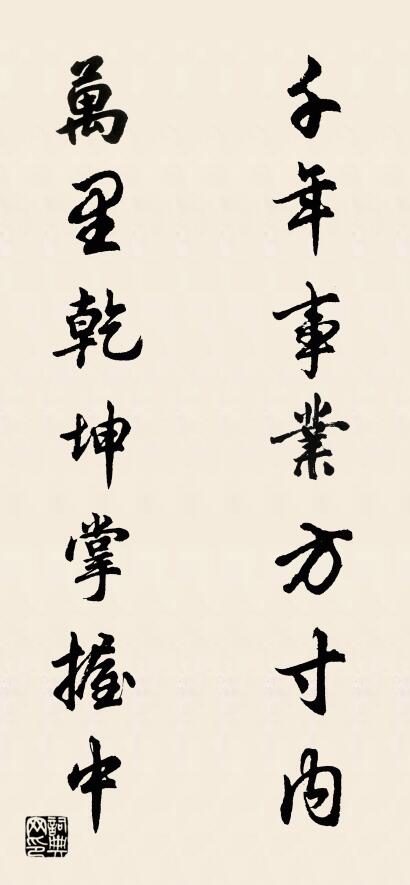 千年事業方寸內
萬里乾坤掌握中
詞典網印